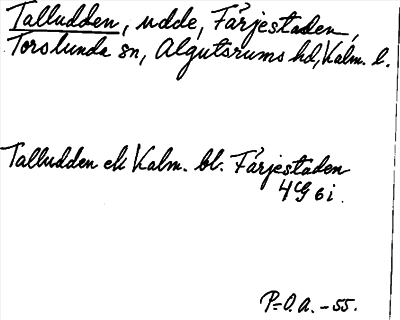 Talludden, udde, Färjestaden,
Torslunda sn, Algutsrums hd, Kalm. l.
Talludden ek Kalm. bl. Färjestaden
4G 6i.
P-O.A. -55.